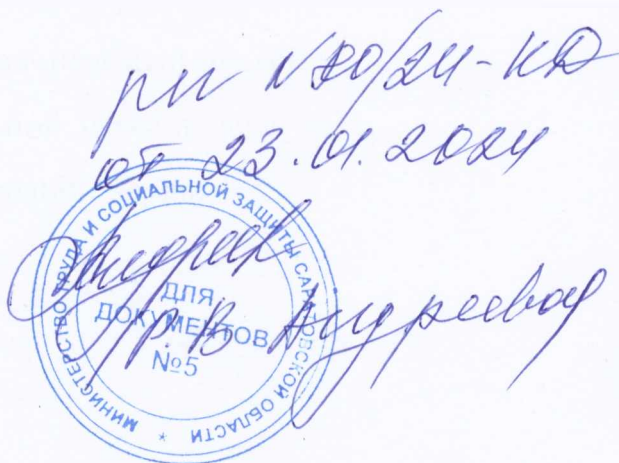 рн №80/24-КД
от 23.01.2024
МИНИСТЕРСТВО ТРУДА И СОЦИАЛЬНОЙ ЗАЩИТЫ САРАТОВСКОЙ ОБЛАСТИ *
ДЛЯ
ДОКУМЕНТОВ
№5
Р.В. Андреева